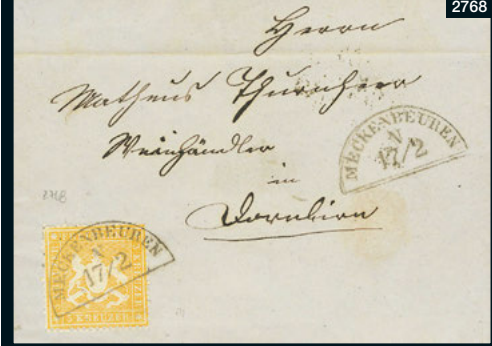 2768
Herrn
Matheus Thurnherr
Weinhändler
in
Dornbirn
MECKENBEUREN
N
17/2
2768
MECKENBEUREN
N
17/2
KREUZER